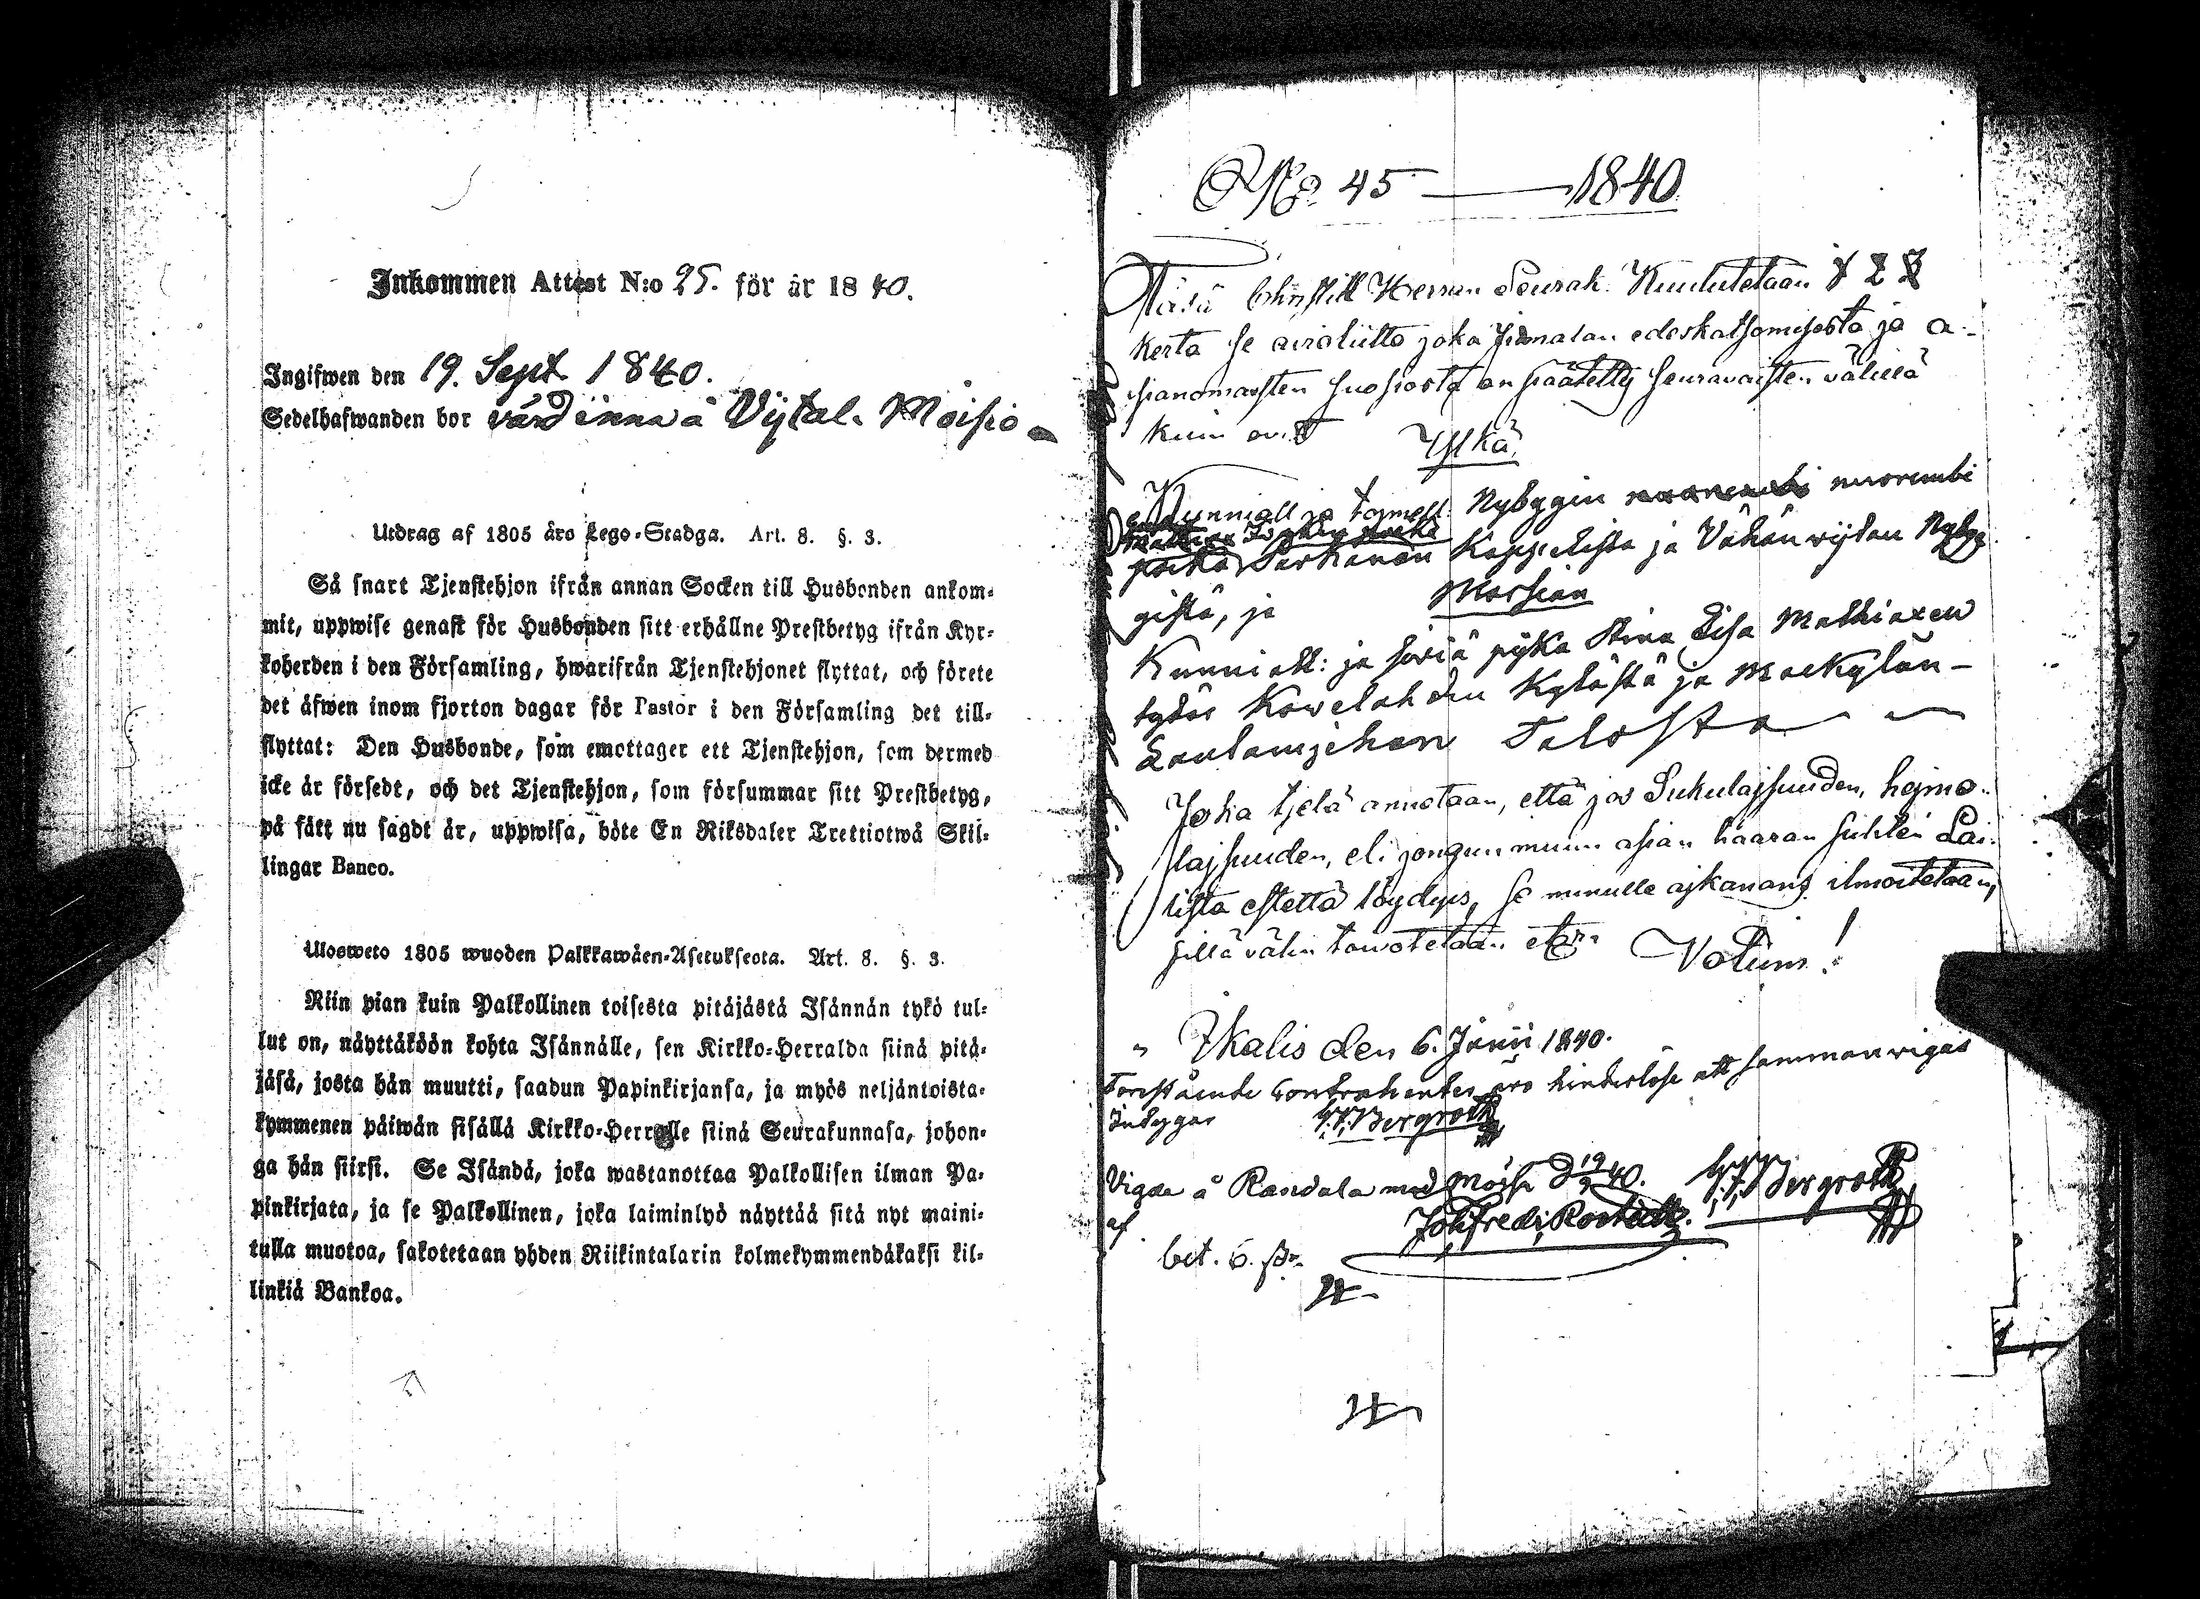 Inkommen Attest N:o 25. för år 1840.
Ingifwen den 19. Sept 1840.
Sedelhafwanden bor värdinna å Vijtal. Moisio
Utdrag af 1805 års Lego-Stadga. Art. 8. §. 3.
Så snart Tjenstehjon ifrån annan Socken till Husbonden ankom-
mit, uppwise genast för Husbonden sitt erhållne Prestbetyg ifrån Kyr-
koherden i den Församling, hwarifrån Tjenstehjonet flyttat, och förete
det äfwen inom fjorton dagar för Pastor i den Församling det till-
flyttat: Den Husbonde, som emottager ett Tjenstehjon, som dermed
icke är försedt, och det Tjenstehjon, som försummar sitt Prestbetyg,
på sätt nu sagdt är, uppwisa, böte En Riksdaler Trettiotwå Skil-
lingar Banco.
Ulosweto 1805 wuoden Palkkawäen-Asetuksesta. Art. 8. §. 3.
Niin pian kuin Palkollinen toisesta pitäjästä Isännän tykö tul-
lut on, näyttäköön kohta Isännälle, sen Kirkko-Herralda siinä pitä-
jäsä, josta hän muutti, saadun Papinkirjansa, ja myös neljäntoista-
kymmenen päiwän sisällä Kirkko-Herralle siinä Seurakunnasa, johon-
ga hän siirsi. Se Isändä, joka wastanottaa Palkollisen ilman Pa-
pinkirjata, ja se Palkollinen, joka laiminlyö näyttää sitä nyt maini-
tulla muotoa, sakotetaan yhden Riikintalarin kolmekymmendäkaksi kil-
linkiä Bankoa.
No. 45 — 1840
Täsä Christill Herran Seurak. Kuulutetaan 1 2 3
kerta se avioliitto joka Jumalan edeskatsomisesta ja a-
sianomaisten suosiosta on päätetty seuravaisten välillä
kuin ovat
Yllkä
Kunniall ja toimell. Nybyggin nuorembi
poika Parkanon Kappelista ja Vähän wijdan Nybyg
gistä, ja Morsian
Kunniall: ja siviä pijka Stina Lisa Mathiaxen
tydär Kowelahden Kylästä ja Maekylän-
Laulamjehen Talosta
Joka tjetä annetaan, että jos Sukulajsuuden, hejmo-
lajsuuden, eli jongun muun asian haaran suhten Lai-
lista estettä löydyis, se minulle ajkanans ilmoitetaan,
sillä välin toivotetaan etc. Votum!
Ikalis den 6. Junii 1840.
Forestående contrahenter äro hinderlöse att sammanvigas
intygar J. F. Bergroth
Vigde å Randala med Möisa d 19/9 40. J. F. Bergroth
af
bet. 6. sk